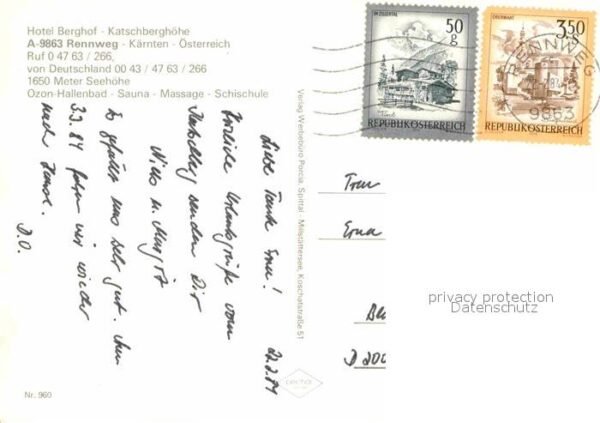 Hotel Berghof - Katschberghöhe
A-9863 Rennweg - Kärnten - Österreich
Ruf 0 47 63 / 266,
von Deutschland 00 43 / 47 63 / 266
1650 Meter Seehöhe
Ozon-Hallenbad - Sauna - Massage - Schischule
22.2.84
Liebe Tante Erna!
Herzliche Urlaubsgrüße vom
Katschberg senden Dir
Nils u. Margit
Es gefällt uns sehr gut. Am
3.3.84 fahren wir wieder
nach Hause.
D.O.
Nr. 960
Verlag Werbebüro Porcia, Spittal - Millstättersee, Koschatstraße 51
IM ZILLERTAL
50
g
Tirol
REPUBLIK ÖSTERREICH
OBERWART
3,50
REPUBLIK ÖSTERREICH
RENNWEG
9863
Frau
Erna
Be
D 200
privacy protection
Datenschutz